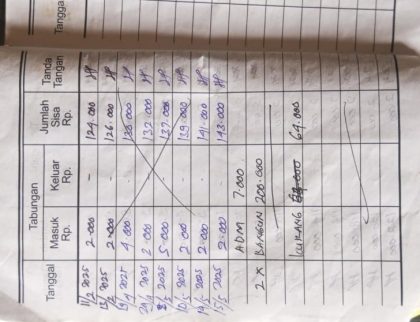 Tanggal
Tabungan
Tanggal | Masuk Rp. | Keluar Rp. | Jumlah Sisa Rp. | Tanda Tangan
11/2 2025 | 2.000 | - | 124.000
2.000 | - | 126.000
2025 | 4.000 | - | 130.000
2025 | 2.000 | - | 132.000
2025 | 5.000 | - | 137.000
2025 | 2.000 | - | 139.000
14/5 2025 | 2.000 | - | 141.000
15/5 2025 | 2.000 | - | 143.000
ADM 7.000
2 x BANGUN 200.000
KURANG 64.000